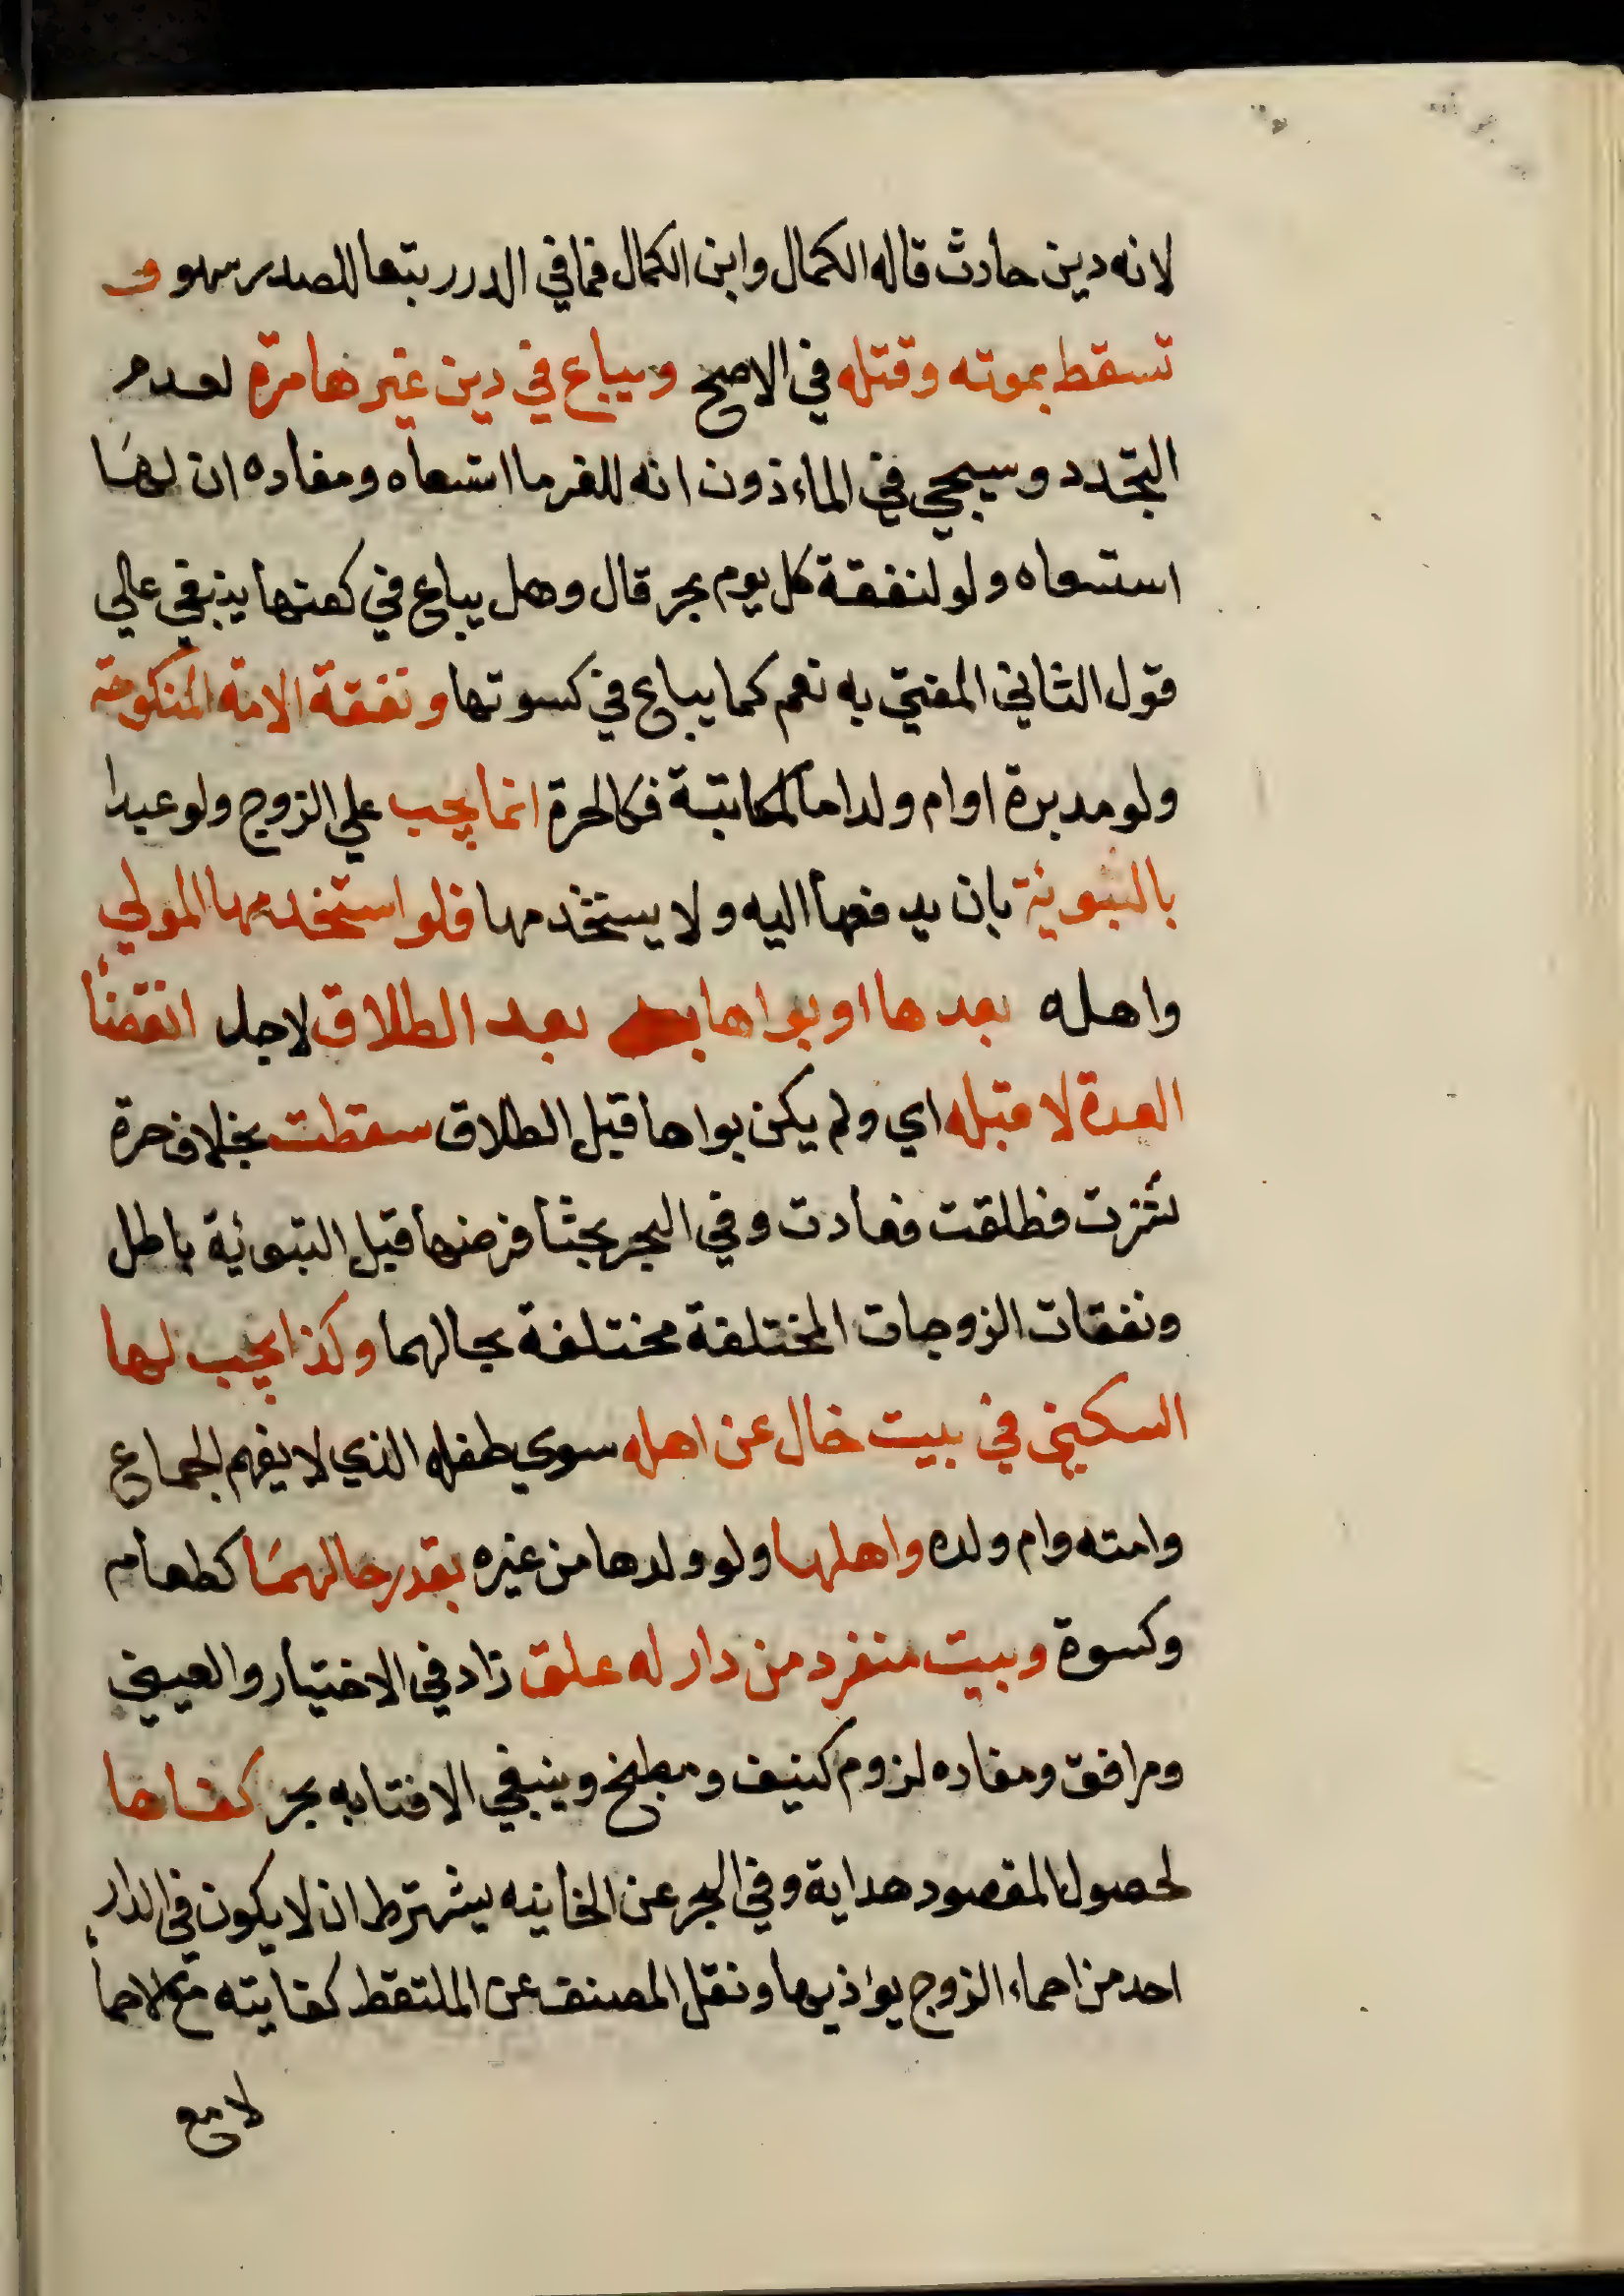 لانه دين حادث قاله الكمال وابن الكمال فما في الدرر بتعا للصدر سهو و
تسقط بموته وقتله في الاصح ويباع في دين غيرها مرة لعدم
التجدد وسيجي في الماءذون انه للغرما استسعاه ومفاده ان لها
استسعاه ولو لنفقة كل يوم بحر قال وهل يباع في كفنها ينبغي علي
قول الثاني المفتي به نعم كما يباع في كسوتها ونفقة الامة المنكوحة
ولو مدبرة او ام ولد اما المكاتبة فكالحرة انما يجب علي الزوج ولو عبدا
بالتبوئة بان يدفعها اليه ولا يستخدمها فلو استخدمها المولي
واهله بعدها او بواها بعد الطلاق لاجل انقضأ
العدة لا قبله اي ولم يكن بواها قبل الطلاق سقطت بخلاف حرة
نشزت فطلقت فعادت وفي البحر بحثا فرضها قبل التبوئة باطل
ونفقات الزوجات المختلفة مختلفة بحالهما وكذا يجب لها
السكني في بيت خال عن اهله سوي طفله الذي لا يفهم الجماع
وامته وام ولده واهلها ولو ولدها من غيره بقدر حالهما كطعام
وكسوة وبيت منفرد من دار له غلق زاد في الاختيار والعيني
ومرافق ومفاده لزوم كنيف ومطبخ وينبغي الافتا به بحر كفاها
لحصول المقصود هداية وفي البحر عن الخانيه يشترط ان لا يكون في الدار
احد من احماء الزوج يؤاذيها ونقل المصنف عن الملتقط كفايته مع الاحمأ
لا مع